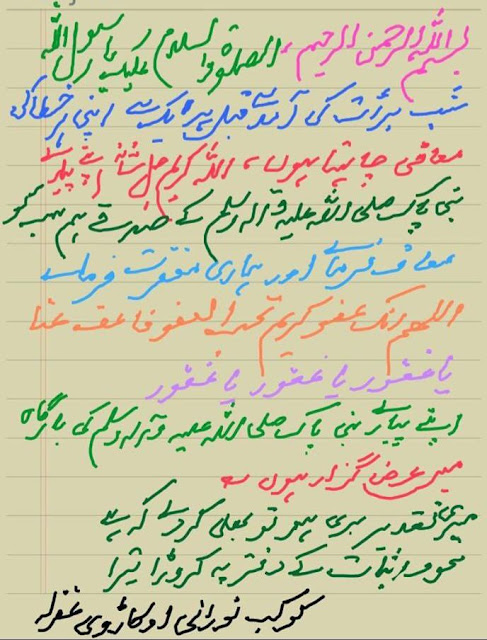 بسم اللہ الرحمن الرحیم، الصلوۃ والسلام علیک یا رسول اللہ
شب برأت کی آمد سے قبل ہر ایک سے اپنی ہر خطا کی
معافی چاہتا ہوں، اللہ کریم جل شانہ اپنے پیارے
نبی پاک صلی اللہ علیہ وآلہ وسلم کے صدقے ہم سب کو
معاف فرمائے اور ہماری مغفرت فرمائے
اللھم انک عفو کریم تحب العفو فاعف عنا
یا غفور یا غفور یا غفور
اپنے پیارے نبی پاک صلی اللہ علیہ وآلہ وسلم کی بارگاہ
میں عرض گزار ہوں ؎
میری تقدیر بری ہو تو بھلی کر دے کہ ہے
محو و اثبات کے دفتر پہ کروڑا تیرا
کوکب نورانی اوکاڑوی غفرلہ